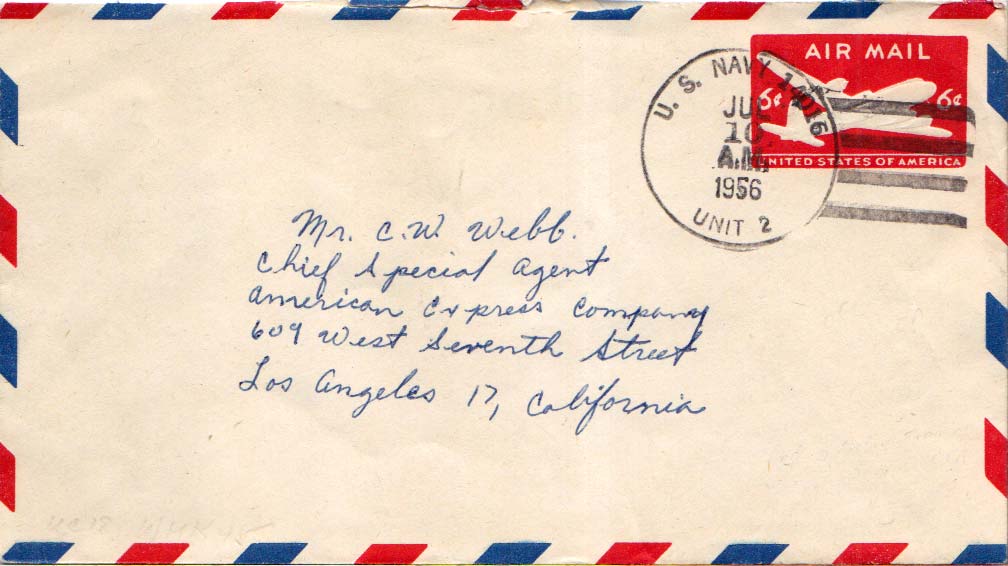 AIR MAIL
6¢ 6¢
UNITED STATES OF AMERICA
U. S. NAVY 14016
JUL
10
A.M.
1956
UNIT 2
Mr. C. W. Webb.
Chief Special Agent
American Express Company
609 West Seventh Street
Los Angeles 17, California